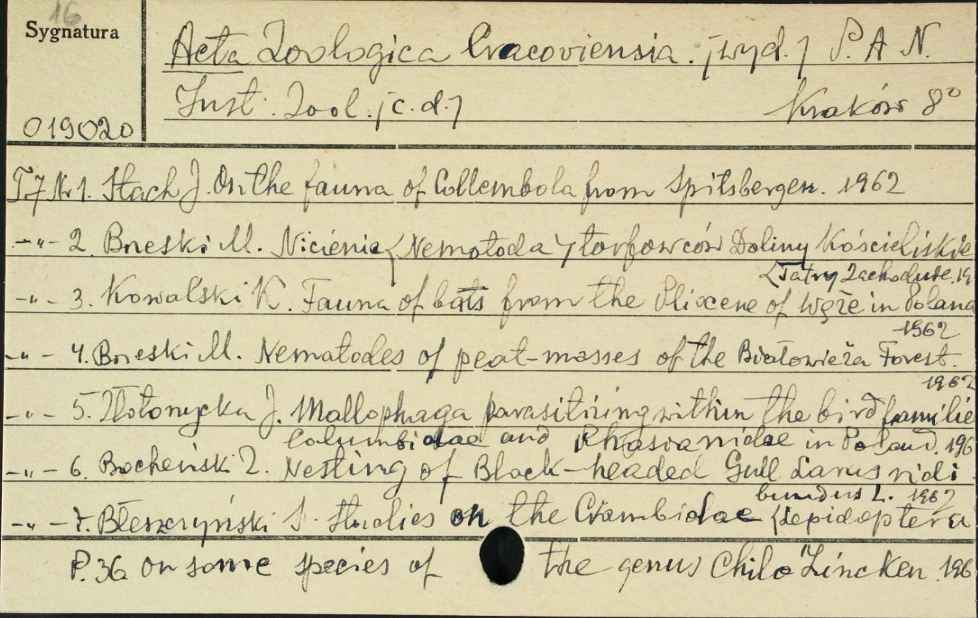 16
Sygnatura
019020
Acta Zoologica Cracoviensia. [wyd.] P. A N.
Inst. Zool. [c.d.] Kraków 8°
T7 Nr 1. Stach J. On the fauna of Collembola from Spitsbergen. 1962
-"- 2. Brzeski M. Nicienie (Nematoda) torfowców Doliny Kościeliskie
(Tatry Zachodnie. 19
-"- 3. Kowalski K. Fauna of bats from the Pliocene of Węże in Poland
1962
-"- 4. Brzeski M. Nematodes of peat-mosses of the Białowieża Forest.
1962
-"- 5. Złotorzycka J. Mallophaga parasitizing within the bird familie
Columbidae and Phasianidae in Poland. 196
-"- 6. Bocheński Z. Nesting of Black-headed Gull Larus ridi
bundus L. 1962
-"- 7. Błeszczyński S. Studies on the Crambidae (Lepidoptera
P. 36 On some species of the genus Chilo Zincken. 196